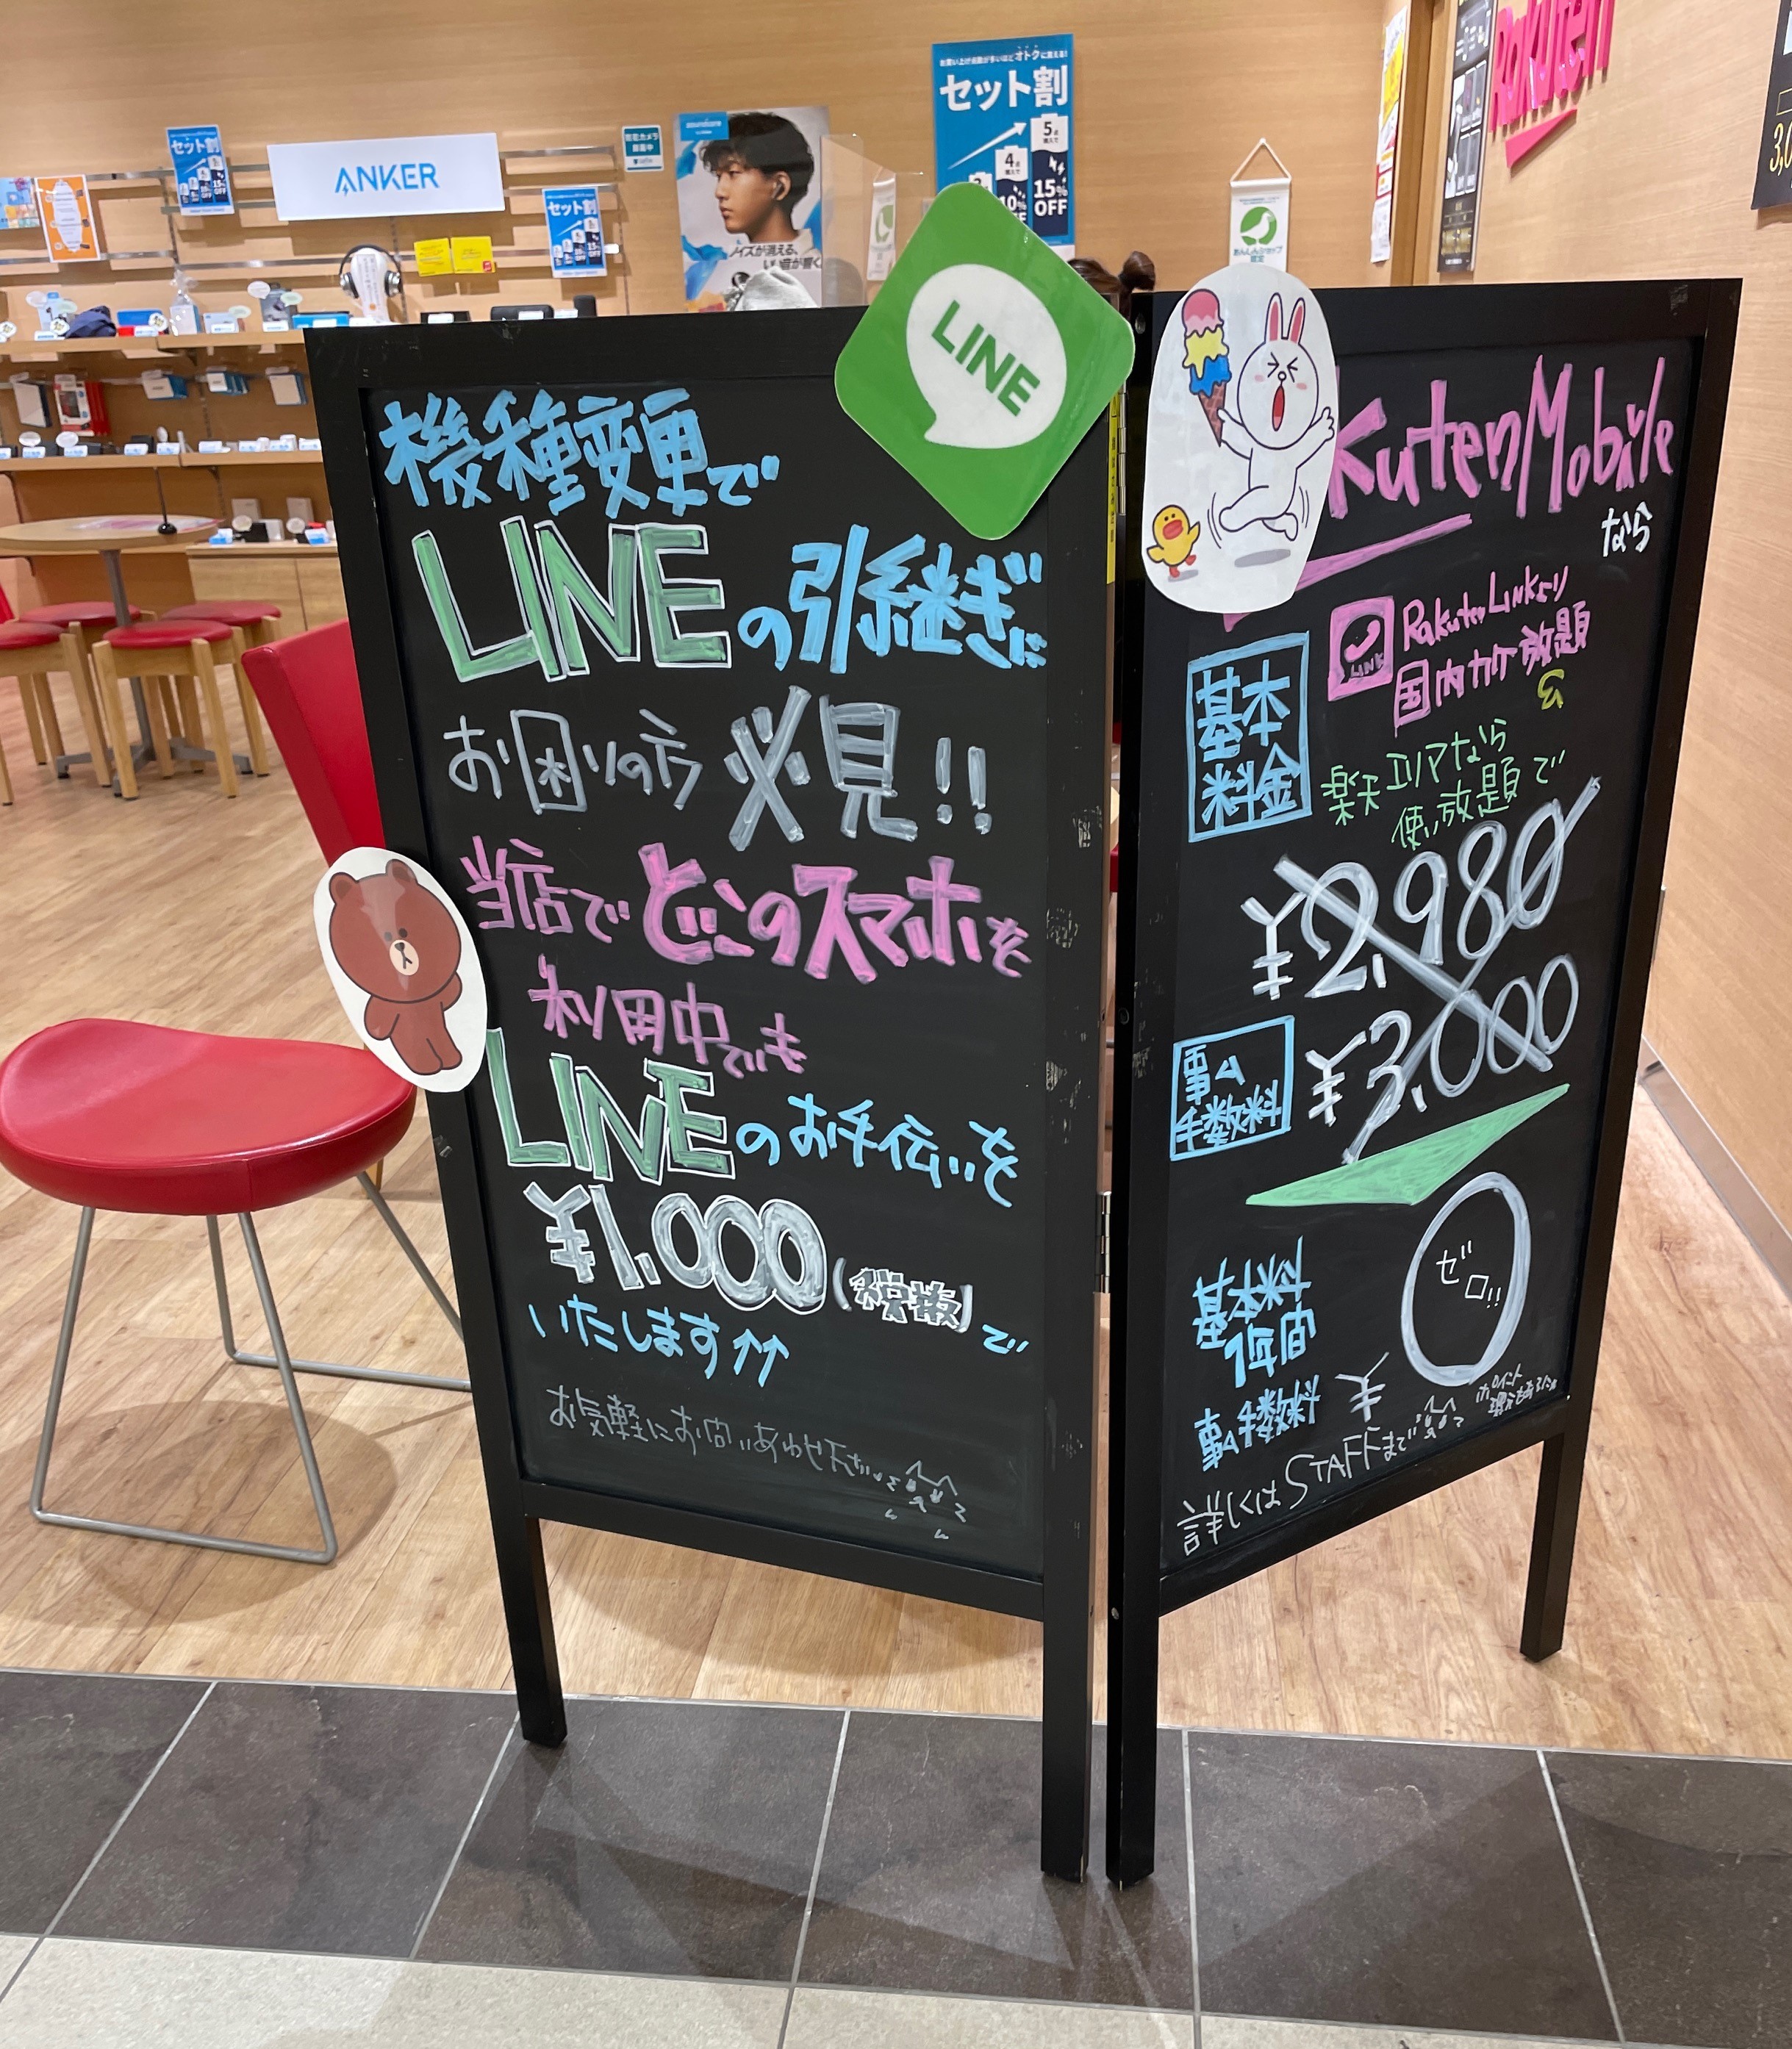 セット割
5点
4点
10%
15%
OFF
Rakuten
セット割
ANKER
防犯カメラ
録画中
セット割
15%
OFF
ノイズが消える、
いい音が響く。
あんしんショップ
認定
LINE
機種変更で
LINEの引継ぎに
お困りの方必見!!
当店でどこのスマホを
利用中でも
LINEのお手伝いを
¥1,000(税抜)で
いたします↑↑
お気軽にお問いあわせ下さい
kutenMobile
なら
基本
料金
LINK
RakutenLinkより
国内カケ放題
楽天エリアなら
使い放題で
¥2,980
事ム
手数料
¥3,000
基本料
1年間
事ム手数料
¥
ゼロ!!
ポイント
詳しくはSTAFFまで